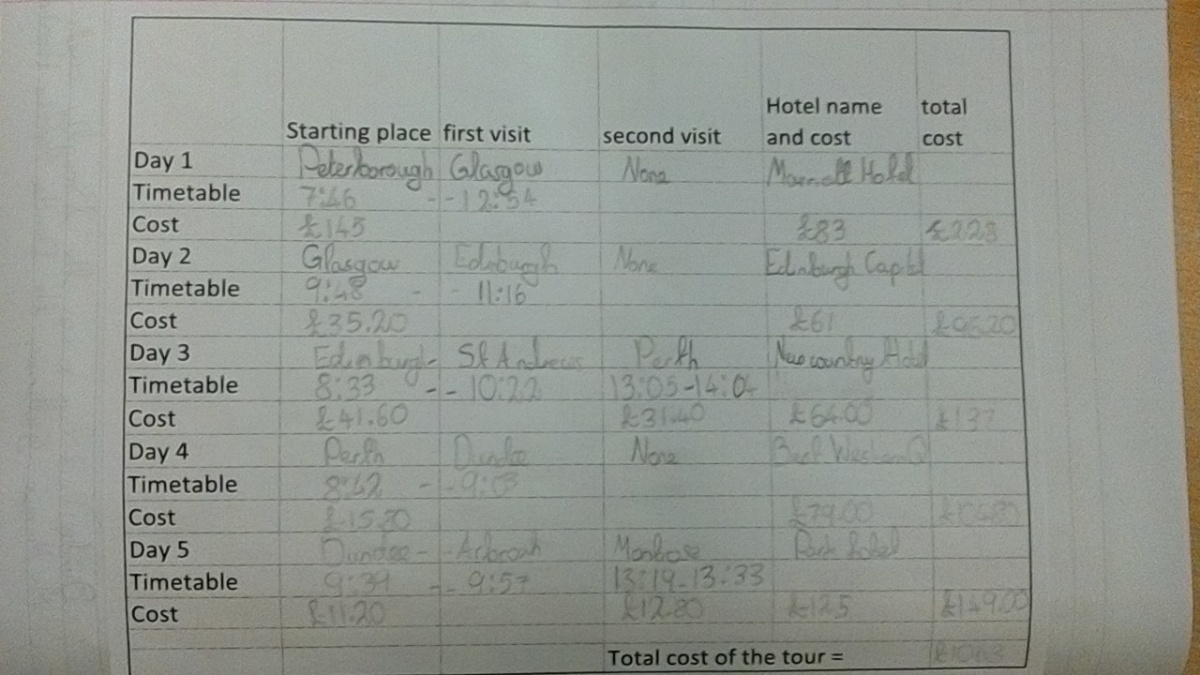 Hotel name total
Starting place first visit second visit and cost cost
Day 1 Peterborough Glasgow None Hotel
Timetable 7:46 - - 12:54
Cost £145 £83 £223
Day 2 Glasgow Edinburgh None Edinburgh Capital
Timetable 9:48 - - 11:16
Cost £35.20 £61
Day 3 Edinburgh - St Andrews Perth country Hotel
Timetable 8:33 - - 10:22 13:05-14:04
Cost £41.60 £31.40 £64.00 £137
Day 4 Perth Dundee None Best Western
Timetable 8:42 - - 9:03
Cost £79.00
Day 5 Dundee - - Arbroath Montrose Park hotel
Timetable 9:39 - - 9:57 13:19-13:33
Cost £11.20 £12.80 £125 £149.00
Total cost of the tour =